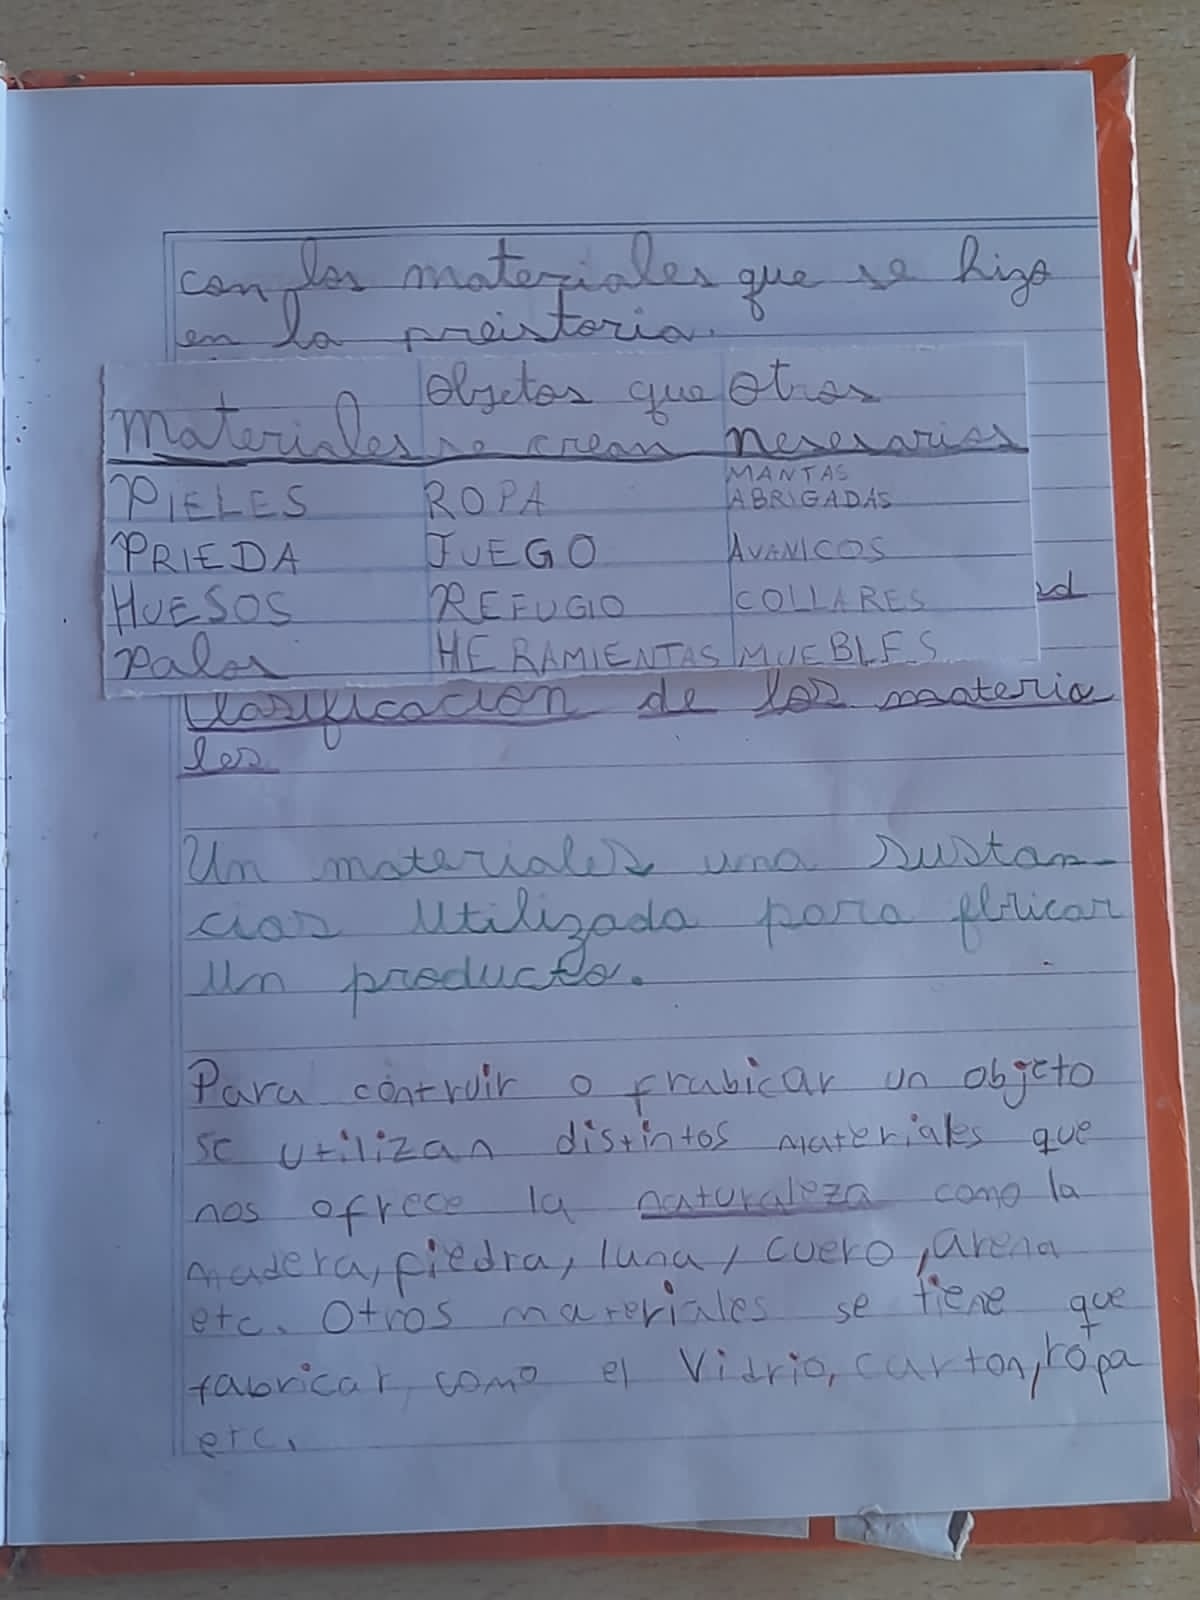 con los materiales que se hizo
en la preistoria.
Materiales Objetos que se crean Otros nesesarios
PIELES ROPA MANTAS ABRIGADAS
PRIEDA FUEGO AVANICOS
HUESOS REFUGIO COLLARES
Palos HERAMIENTAS MUEBLES
Clasificacion de los materia
les
Un materiales una sustan-
cias utilizada para fbricar
un producto.
Para contruir o frabicar un objeto
se utilizan distintos materiales que
nos ofrece la naturaleza como la
madera, piedra, luna, cuero, arena
etc. Otros materiales se tiene que
fabricar, como el Vidrio, carton, ropa
etc.